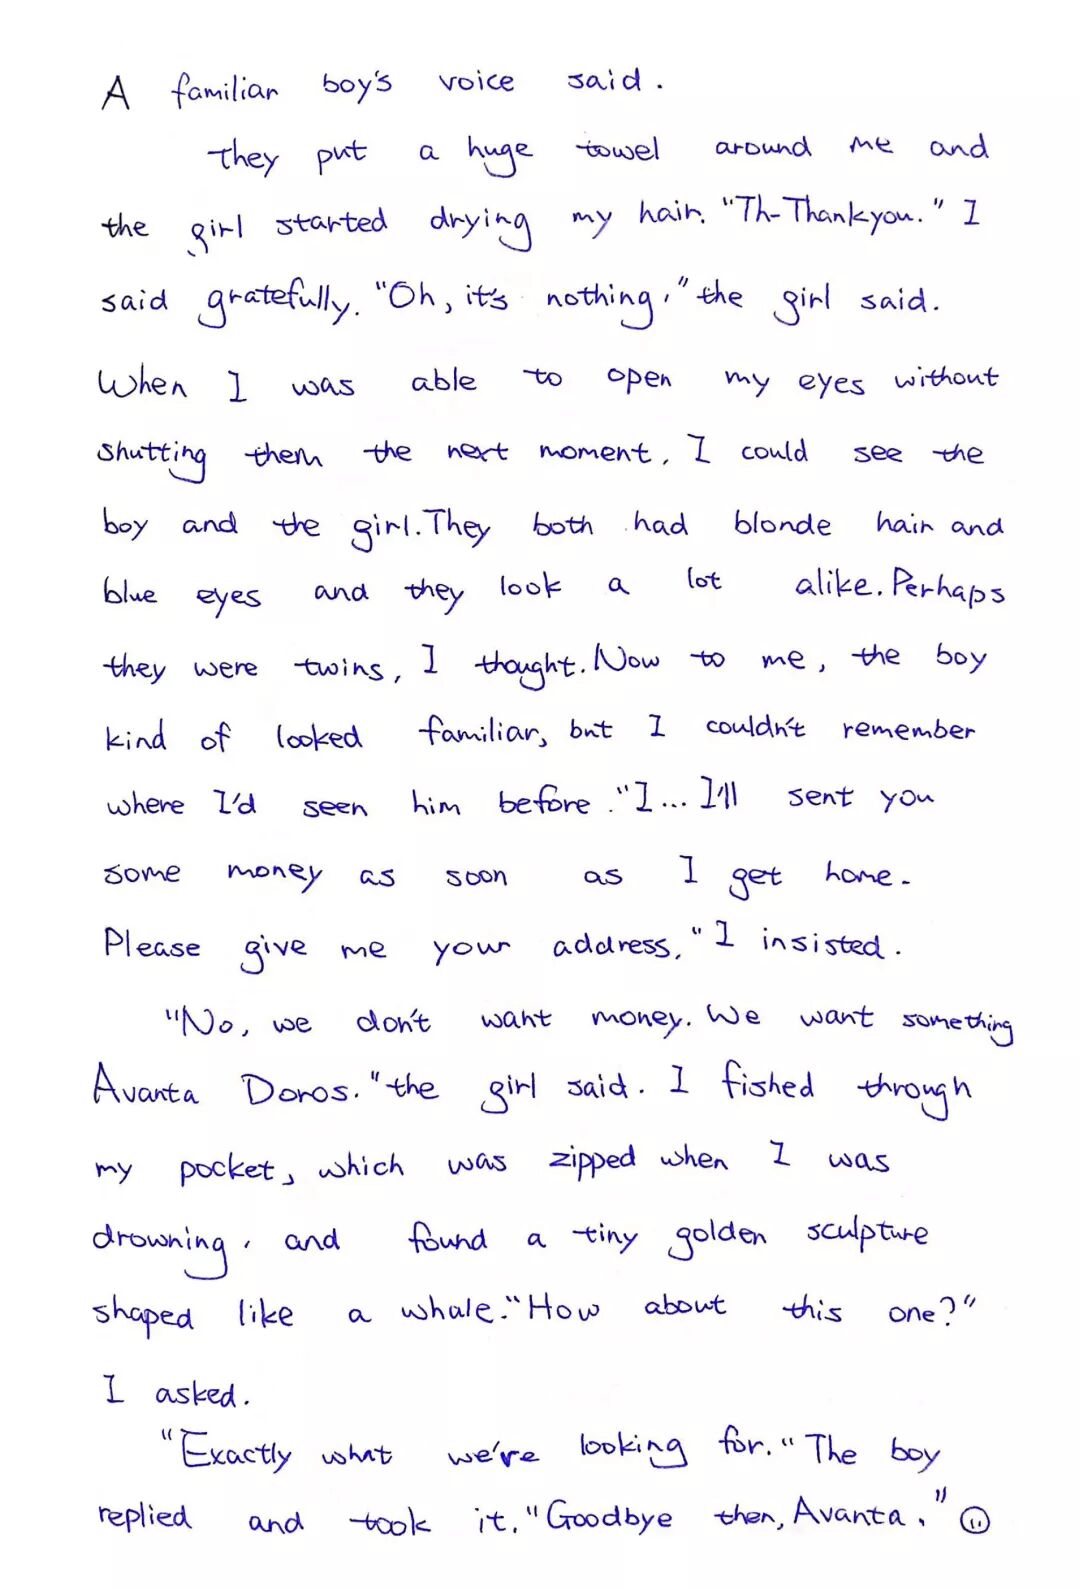 A familiar boy's voice said.
they put a huge towel around me and
the girl started drying my hair. "Th-Thankyou." I
said gratefully. "Oh, it's nothing," the girl said.
When I was able to open my eyes without
shutting them the next moment, I could see the
boy and the girl. They both had blonde hair and
blue eyes and they look a lot alike. Perhaps
they were twins, I thought. Now to me, the boy
kind of looked familiar, but I couldn't remember
where I'd seen him before. "I... I'll sent you
some money as soon as I get home.
Please give me your address," I insisted.
"No, we don't want money. We want something
Avanta Doros." the girl said. I fished through
my pocket, which was zipped when I was
drowning, and found a tiny golden sculpture
shaped like a whale. "How about this one?"
I asked.
"Exactly what we're looking for." The boy
replied and took it. "Goodbye then, Avanta."